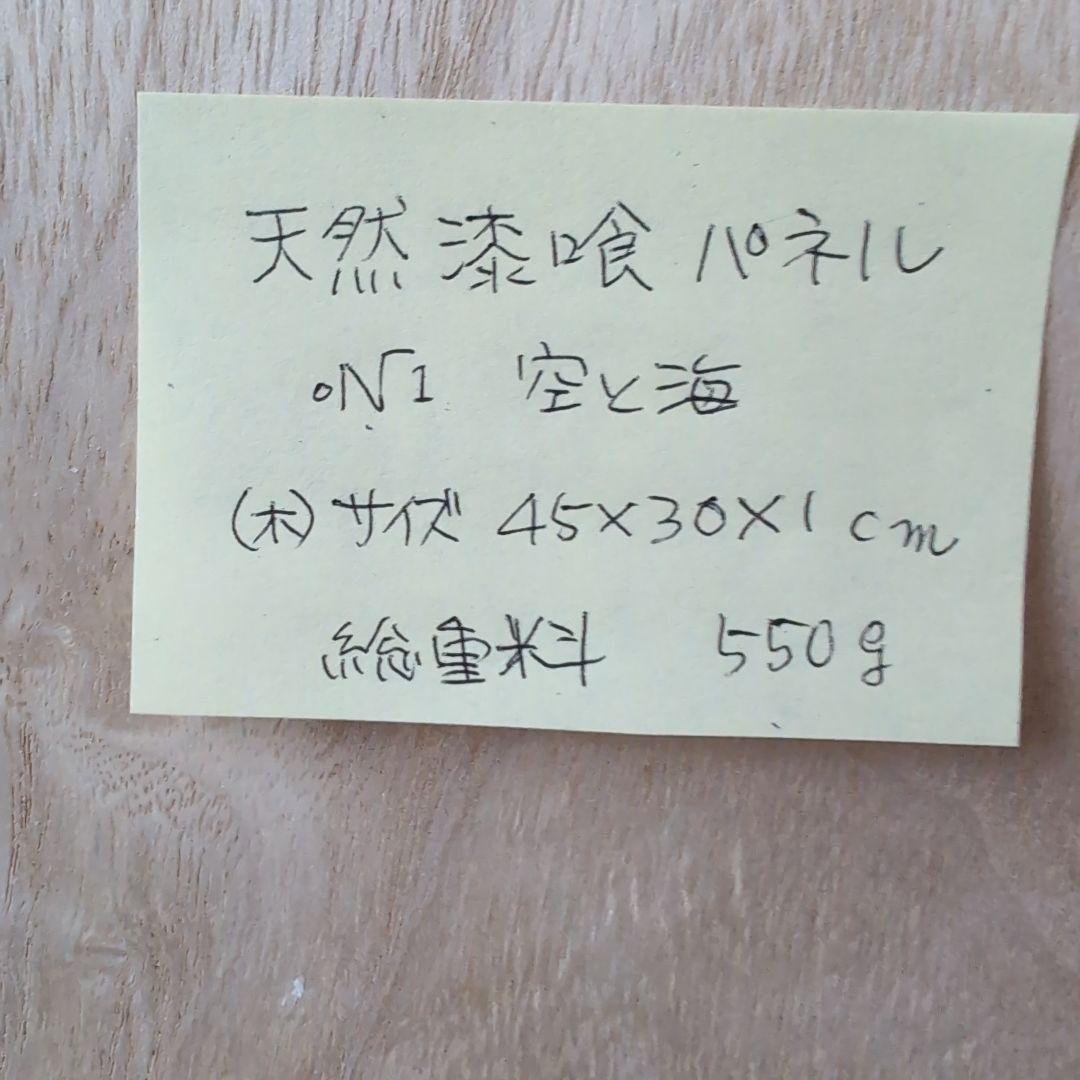 天然漆喰パネル
。N1 空と海
(木)サイズ 45×30×1cm
総重料 550g